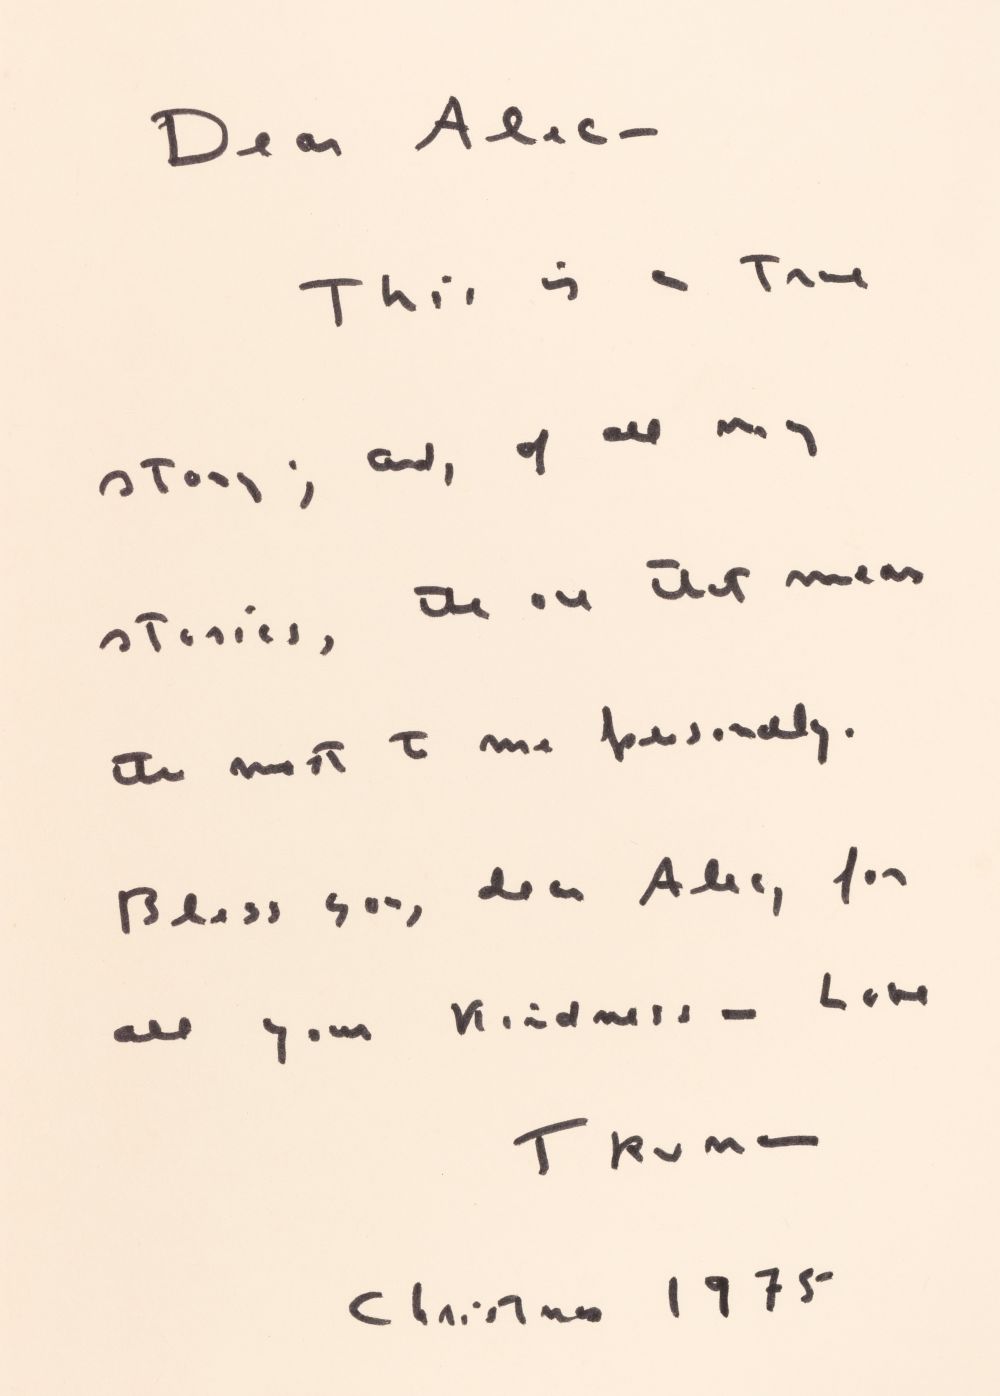 Dear Alec—
This is a True
story; and, of all my
stories, the one that means
the most to me personally.
Bless you, dear Alec, for
all your Kindness — Love
Truman
Christmas 1975